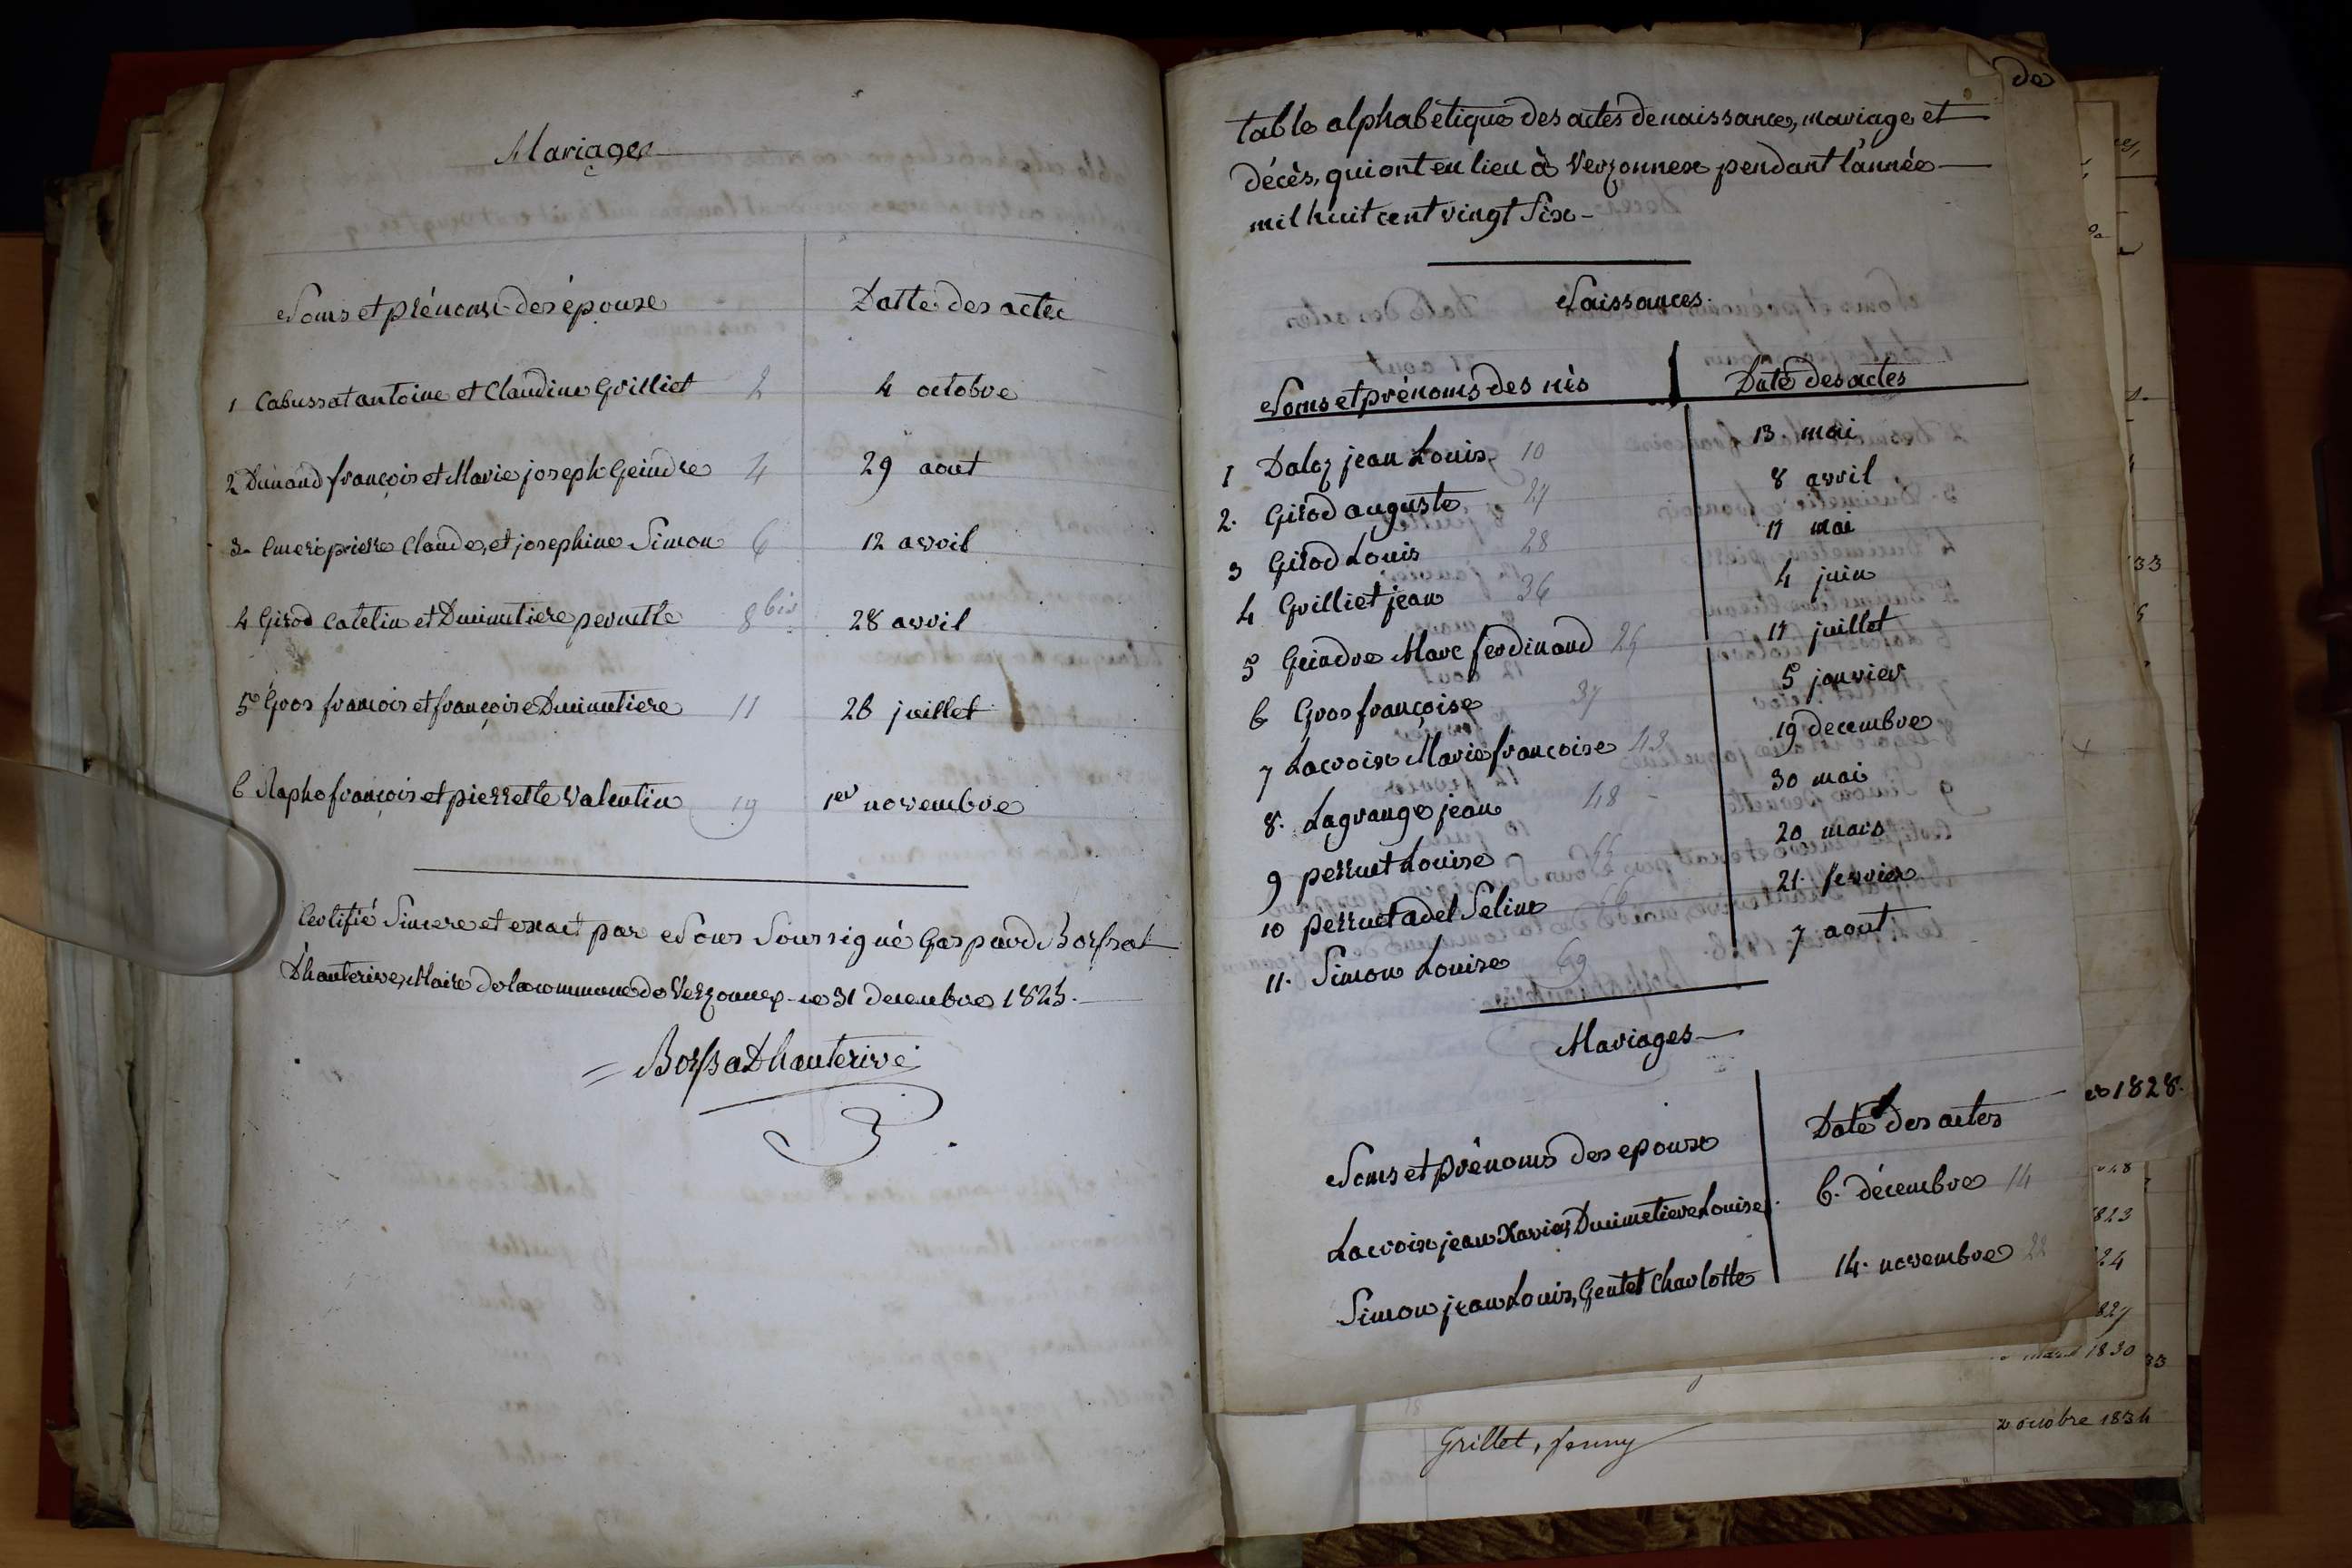 Mariages
Noms et prénoms des époux
Datte des actes
1 Cabussat antoine et Claudine Grilliet 2 4 octobre
2 Dunand françois et Marie joseph Geindre 4 29 aout
3. Emeri pierre Claude, et josephine Simon 6 12 avril
4 Girod Catelin et Ducimetiere pernette 8 bis 28 avril
5 Gros francois et françoise Ducimetiere 11 26 juillet
6 Rapho françois et pierrette Valentin 19 1er novembre
Certifié Sincere et exact par Nous Soussigné Gaspard Borssat
Dhauterive, Maire de la commune de Verzonnex ce 31 decembre 1825.
Borssat Dhauterive
de
table alphabetique des actes de naissance, mariage et
décès, qui ont eu lieu à Verzonnex pendant l'année
mil huit cent vingt Six
Naissances.
Noms et prénoms des nés
Date des actes
1 Daloz jean Louis 10 13. mai
2. Girod auguste 27 8 avril
3 Girod Louis 28 17 mai
4 Grilliet jean 36 4 juin
5 Geindre Marc ferdinand 25 17 juillet
6 Gros françoise 37 5 janvier
7 Lacroix Marie francoise 43 19 decembre
8. Lagrange jean 48 30 mai
9 perruet Louise 55 20 mars
10 perruet adel Seline 56 21. fevrier
11. Simon Louise 69 7 aout
Mariages
Noms et prénoms des epoux
Date des actes
Lacroix jean Xavier, Ducimetiere Louise. 6. décembre 14
Simon jean Louis, Gentet Charlotte 14. novembre 22
33
1828.
1823
24
827
1830
33
Grillet, fanny
20 octobre 1834